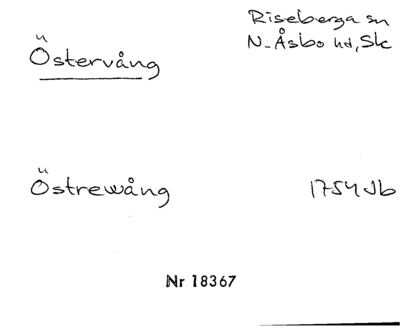 Östervång
Riseberga sn
N-Åsbo hd, Sk
Östrewång
1754 Jb
Nr 18367